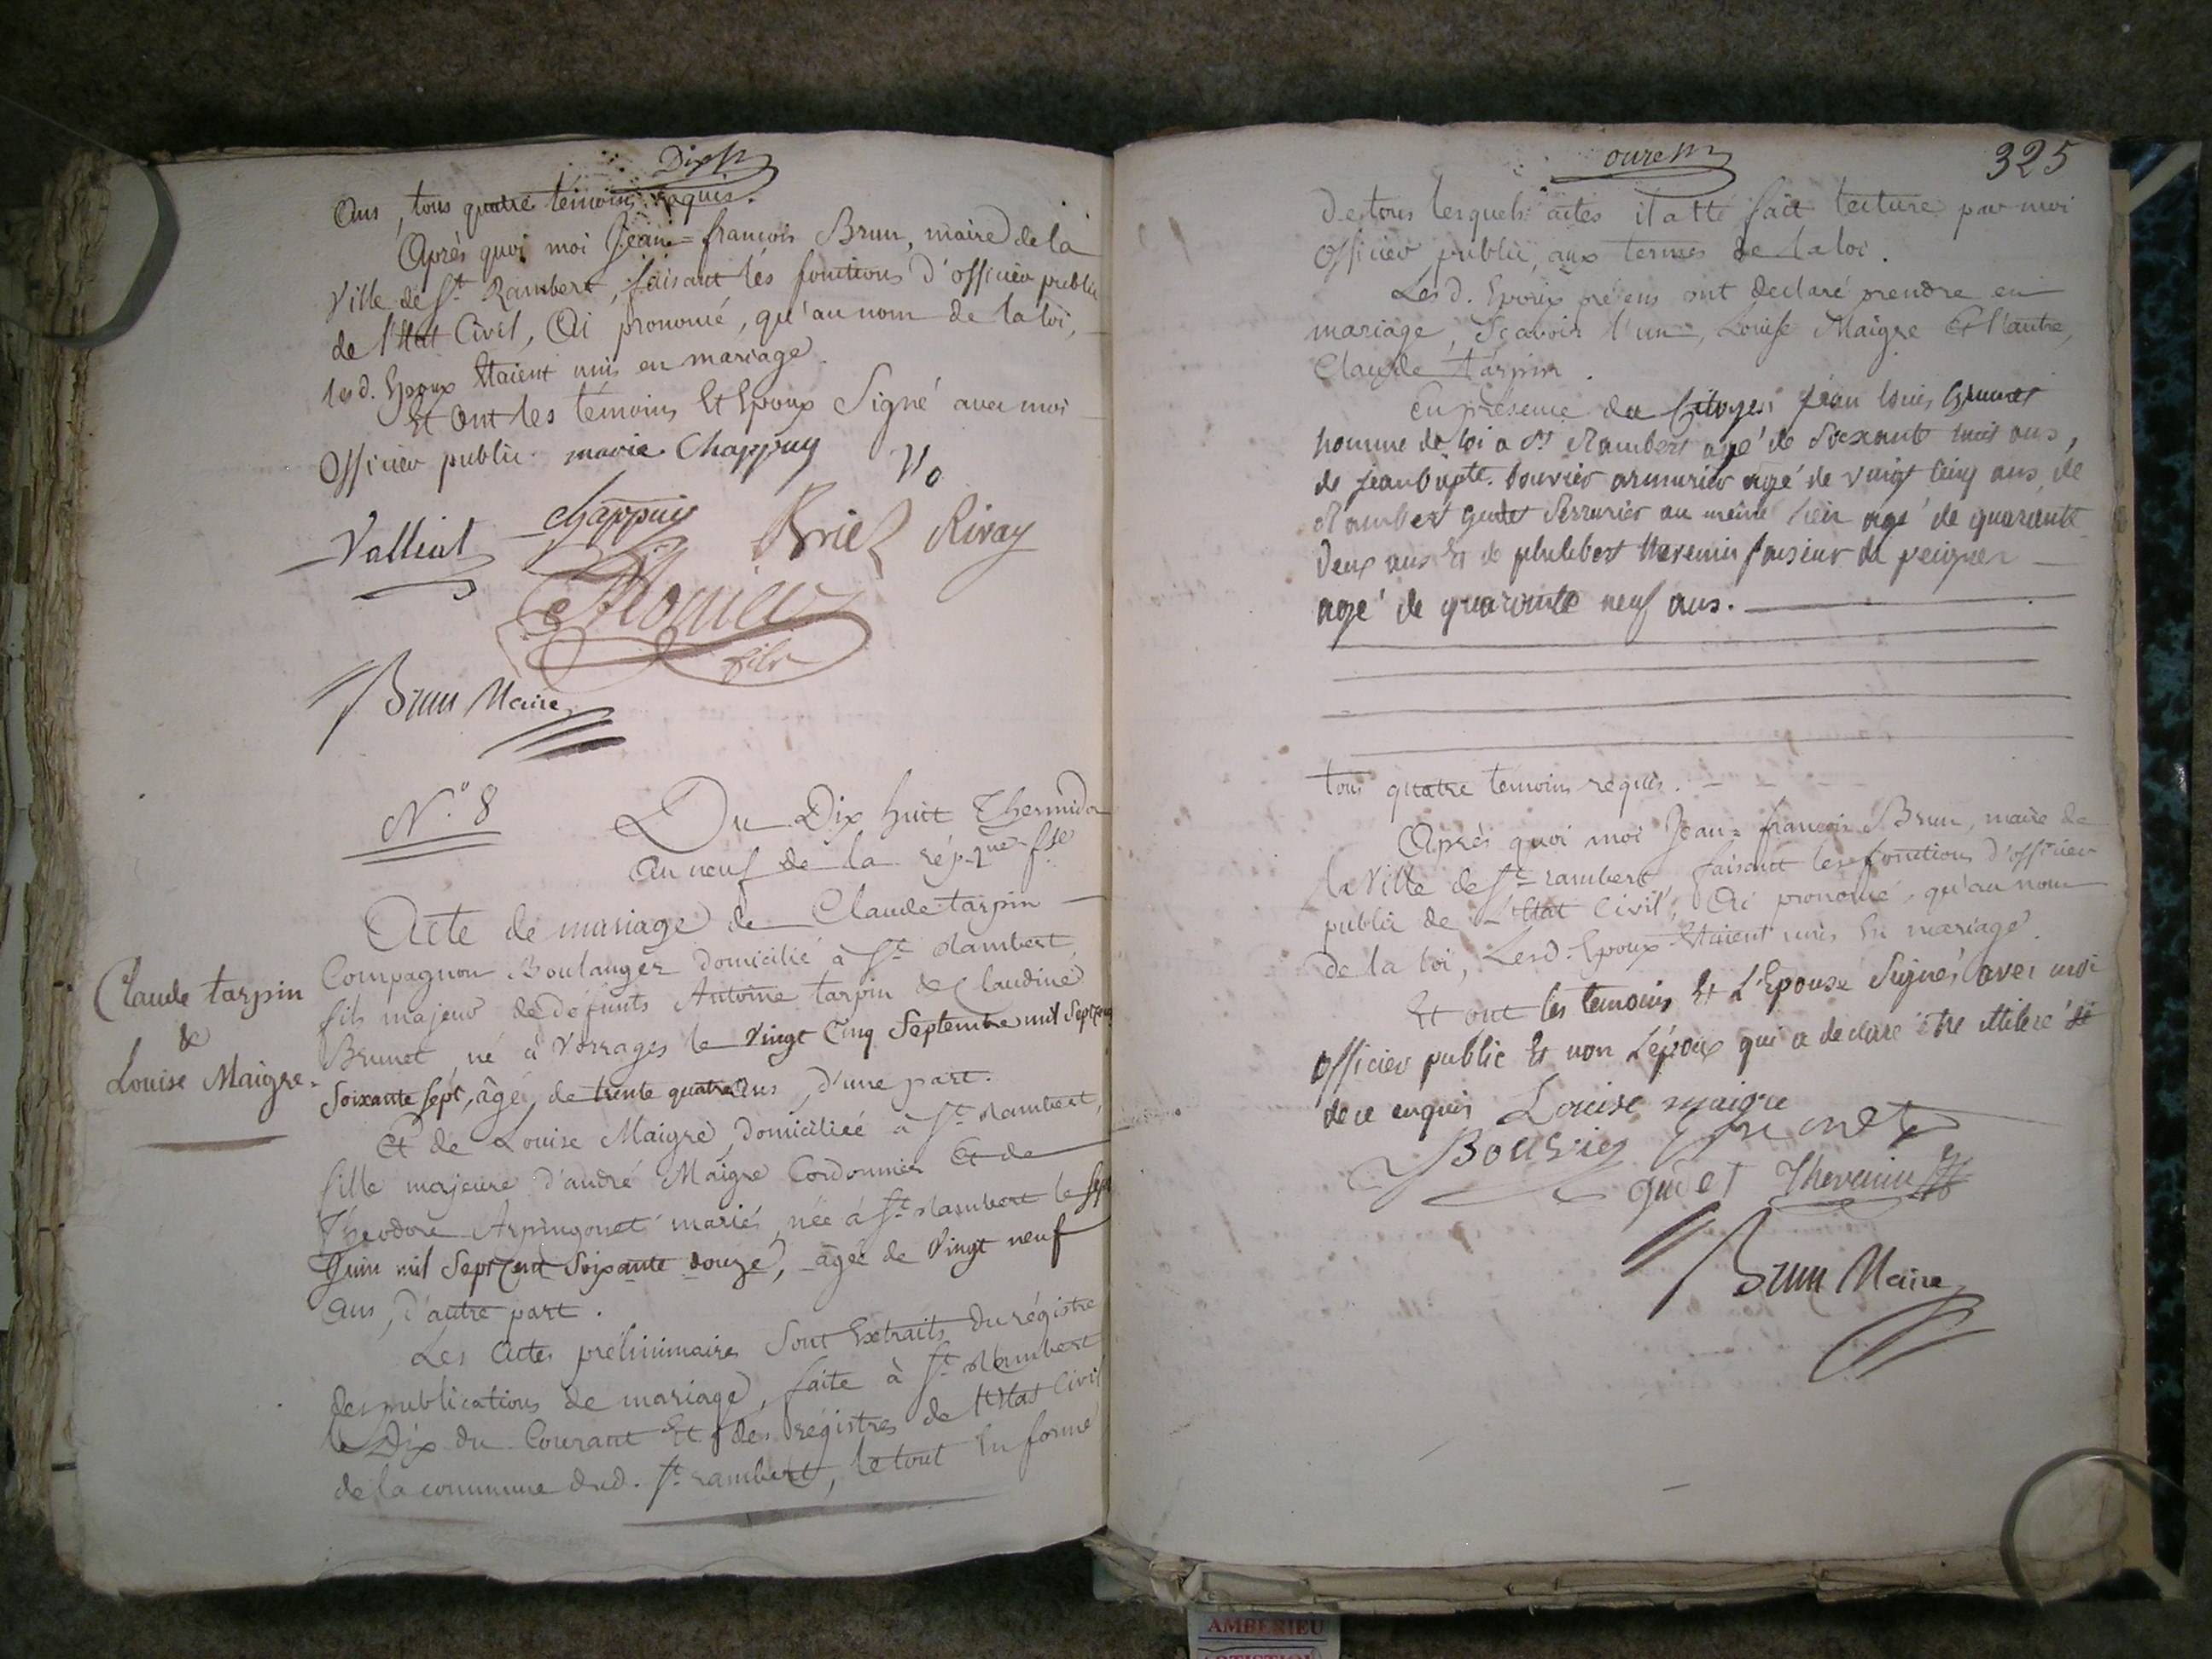 Dix
Ans, tous quatre témoins requis.
Après quoi moi Jean=françois Brun, maire de la
Ville de St Rambert, faisant les fonctions d'officier public
de l'Etat Civil, Ai prononcé, qu'au nom de la loi,
les d. Epoux Etaient unis en mariage.
Et Ont les témoins Et Epoux Signé avec moi
Officier public. marie Chappuy
Valliat chappuy Briel Rivay
Monier
fils
Brun Maire
N.° 8
Du Dix huit Thermidor
An neuf de la répque fse
Acte de mariage de Claude tarpin
Compagnon Boulanger domicilié à St Rambert,
fils majeur de défunts Antoine tarpin & Claudine
Brunet, né à Vorrages le Vingt Cinq Septembre mil Sept Cent
Soixante sept, âgé de trente quatre Ans, d'une part.
Claude tarpin
&
Louise Maigre.
Et de Louise Maigre, domiciliée à St Rambert,
fille majeure d'andré Maigre Cordonnier Et de
Théodore Arpingonet mariés, née à St Rambert le Sept
Juin mil Sept Cent Soixante douze, âgée de Vingt neuf
Ans, d'autre part.
Les Actes préliminaires Sont Extraits du régistre
des publications de mariage, faite à St Rambert
le Dix du Courant Et des régistres de l'Etat Civil
de la commune dud. St rambert, le tout En forme
onze
325
De tous lesquels actes il a été fait lecture par moi
Officier public, aux termes de la loi.
Les d. Epoux présens ont declaré prendre en
mariage, Sçavoir l'un, Louise Maigre Et l'autre,
Claude tarpin.
En présence du Citoyen jean louis brunet
homme de loi a St Rambert agé de Soixante huit ans,
de jean bapte. bouvier armurier agé de vingt cinq ans, de
Rambert gudet Serrurier au même lieu agé de quarante
deux ans Et de philibert thevenin faiseur de peignes
agé de quarante neuf ans.
tous quatre témoins requis.
Après quoi moi Jean=françois Brun, maire de
la Ville de St rambert faisant les fonctions d'officier
public de L'Etat Civil, Ai prononcé, qu'au nom
de la loi, Les d. Epoux Etaient unis En mariage.
Et ont les temoins Et L'Epouse Signés avec moi
officier public Et non L'époux qui a declaré être illiteré
de ce enquis Louise maigre
Bouvier Brunet
gudet Thevenin
Brun Maire
AMBERIEU